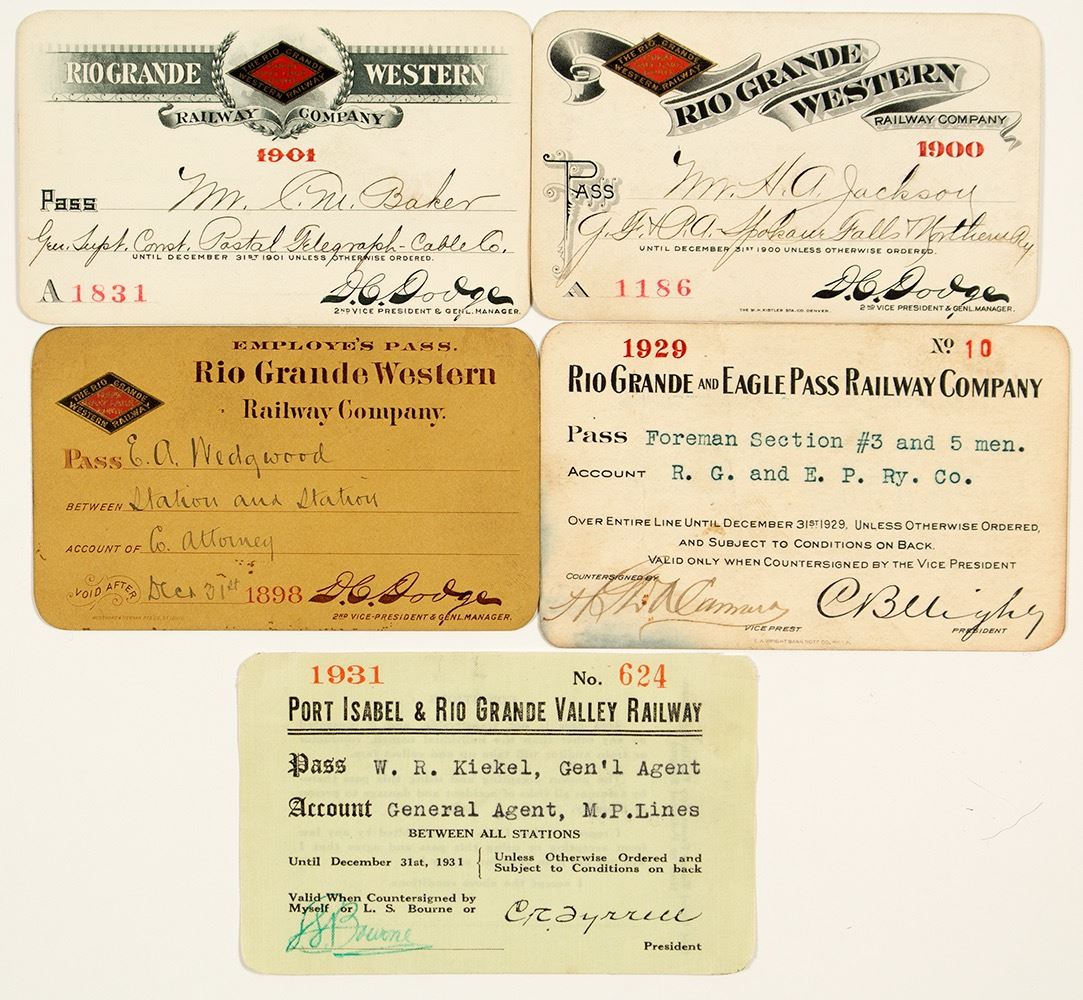 RIO GRANDE WESTERN
THE RIO GRANDE
WESTERN RAILWAY
RAILWAY COMPANY
1901
Pass Mr. C. M. Baker
Gen. Supt. Const. Postal Telegraph-Cable Co.
UNTIL DECEMBER 31ST 1901 UNLESS OTHERWISE ORDERED.
A 1831 D.C. Dodge
2ND VICE PRESIDENT & GENL. MANAGER.
THE RIO GRANDE
WESTERN RAILWAY
RIO GRANDE
WESTERN
RAILWAY COMPANY
1900
PASS Mr. H. A. Jackson
G. F. & P. A. Spokane Falls & Northern Ry
UNTIL DECEMBER 31ST 1900 UNLESS OTHERWISE ORDERED.
A 1186 D.C. Dodge
2ND VICE PRESIDENT & GENL. MANAGER.
THE W.H. KISTLER STA. CO. DENVER.
EMPLOYE'S PASS.
Rio Grande Western
Railway Company.
THE RIO GRANDE
WESTERN RAILWAY
Pass E. A. Wedgwood
BETWEEN Station and Station
ACCOUNT OF Co. Attorney
VOID AFTER Dec 31st 1898 D.C. Dodge
2ND VICE-PRESIDENT & GENL. MANAGER.
1929 No 10
RIO GRANDE AND EAGLE PASS RAILWAY COMPANY
PASS Foreman Section #3 and 5 men.
ACCOUNT R. G. and E. P. Ry. Co.
OVER ENTIRE LINE UNTIL DECEMBER 31ST 1929, UNLESS OTHERWISE ORDERED,
AND SUBJECT TO CONDITIONS ON BACK.
VALID ONLY WHEN COUNTERSIGNED BY THE VICE PRESIDENT
COUNTERSIGNED BY
VICE PREST PRESIDENT
1931 No. 624
PORT ISABEL & RIO GRANDE VALLEY RAILWAY
Pass W. R. Kiekel, Gen'l Agent
Account General Agent, M.P.Lines
BETWEEN ALL STATIONS
Until December 31st, 1931 { Unless Otherwise Ordered and
Subject to Conditions on back
Valid When Countersigned by
Myself or L. S. Bourne or
L S Bourne C.R. Tyrrell
President